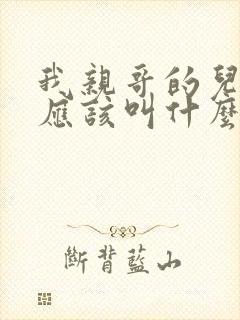 我親哥的兒
應該叫什麼
斷背藍山